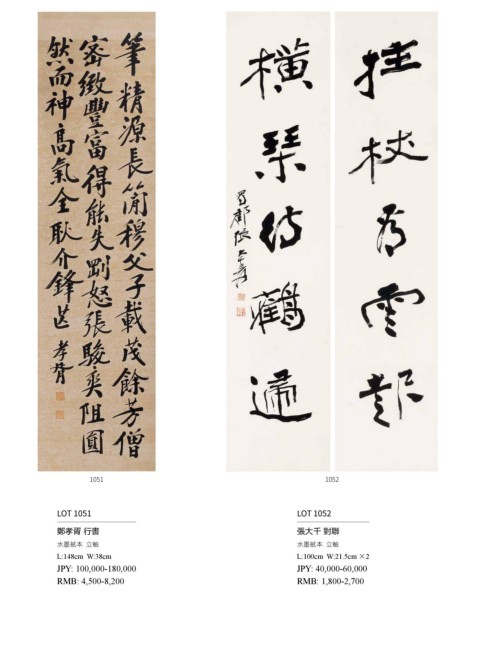 筆精源長簡穆父子載茂餘芳僧
密緻豐富得能失剛怒張駿爽阻圓
然而神高氣全耿介鋒 孝胥
拄杖雲起
橫琴待鶴
蜀郡張大千爰
1051
1052
LOT 1051
鄭孝胥 行書
水墨紙本 立軸
L:148cm W:38cm
JPY: 100,000-180,000
RMB: 4,500-8,200
LOT 1052
張大千 對聯
水墨紙本 立軸
L:100cm W:21.5cm ×2
JPY: 40,000-60,000
RMB: 1,800-2,700